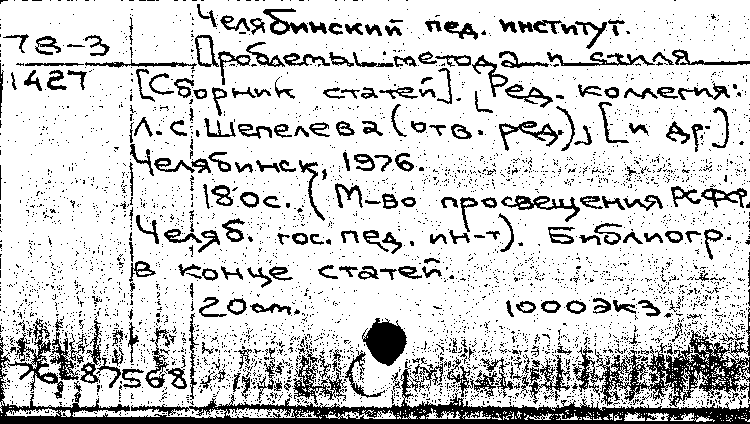 Челябинский пед. институт.
78-3 Проблемы метода и стиля
1427 [Сборник статей]. [Ред. коллегия:
Л.С. Шепелева (отв. ред.)], [и др.].
Челябинск, 1976.
180с. (М-во просвещения РСФСР.
Челяб. гос. пед. ин-т). Библиогр.
в конце статей.
20 1000экз.
76-87568